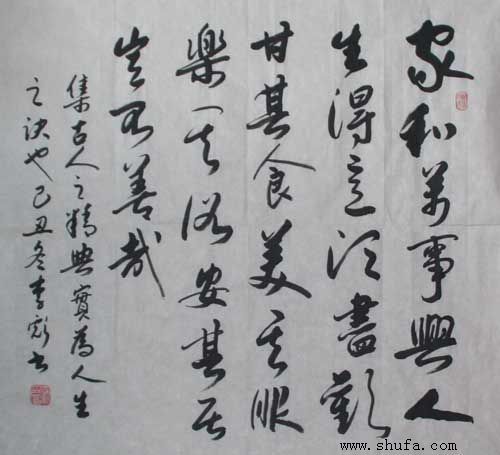 家和萬事興人
生得意須盡歡
甘其食美其服
樂其俗安其居
豈不善哉
集古人之精典實為人生
之訣也己丑冬李書
www.shufa.com